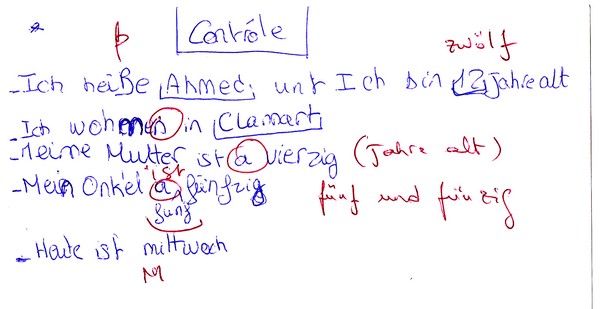 Contrôle
ß
zwölf
- Ich heiße Ahmed, unt Ich bin 12 jahre alt
- Ich wohnen in Clamart
- Meine Mutter ist a vierzig (Jahre alt)
ist
- Mein Onkel a fünfzig fünf und fünzig
funf
- Heute ist mittwoch
M